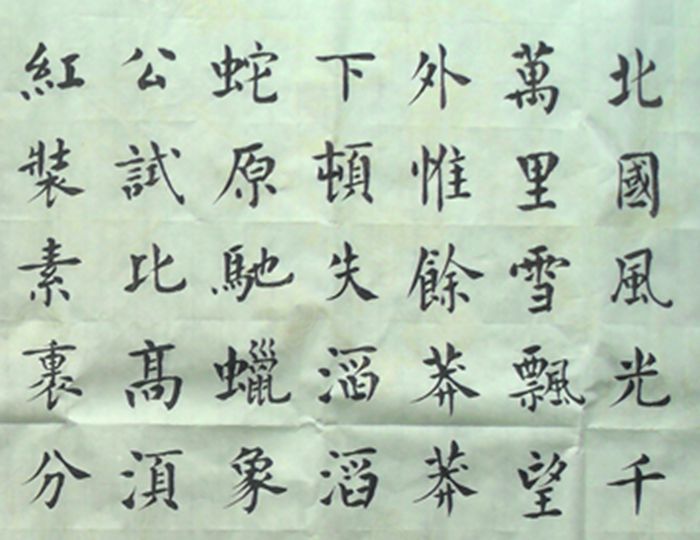 北國風光千
萬里雪飄望
外惟餘莽莽
下頓失滔滔
蛇原馳蠟象
公試比髙湏
紅裝素裹分